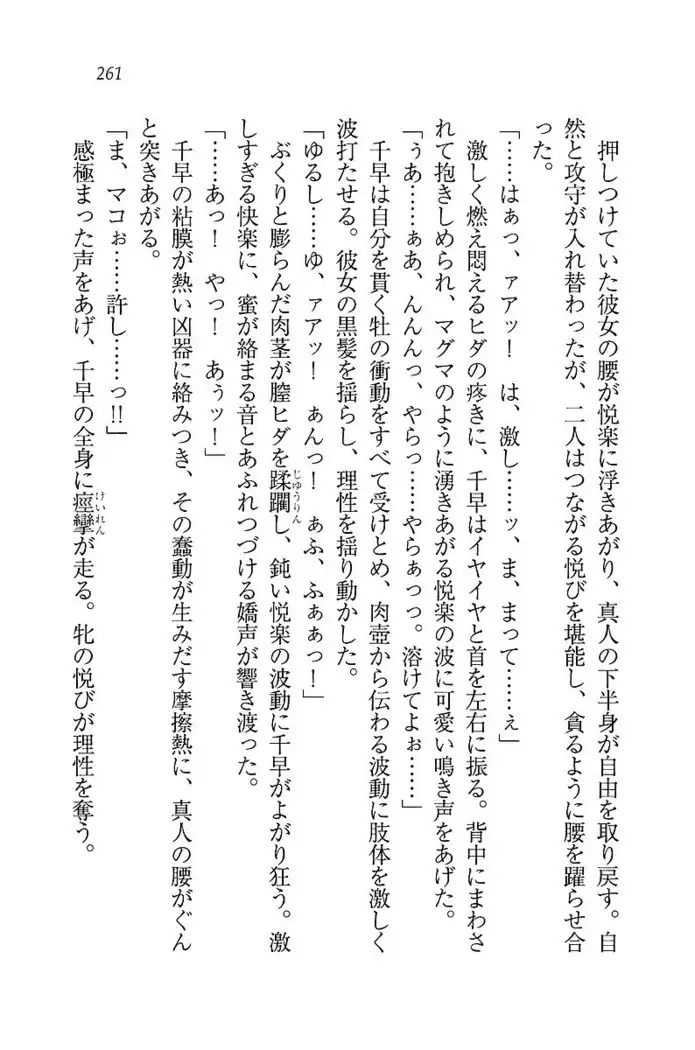 261
押しつけていた彼女の腰が悦楽に浮きあがり、真人の下半身が自由を取り戻す。自
然と攻守が入れ替わったが、二人はつながる悦びを堪能し、貪るように腰を躍らせ合
った。
「……はぁっ、ァアッ！　は、激し……ッ、ま、まって……ぇ」
激しく燃え悶えるヒダの疼きに、千早はイヤイヤと首を左右に振る。背中にまわさ
れて抱きしめられ、マグマのように湧きあがる悦楽の波に可愛い鳴き声をあげた。
「ぅあ……ぁあ、んんんっ、やらっ……やらぁっっ。溶けてよぉ……」
千早は自分を貫く牡の衝動をすべて受けとめ、肉壺から伝わる波動に肢体を激しく
波打たせる。彼女の黒髪を揺らし、理性を揺り動かした。
「ゆるし……ゆ、ァアッ！　ぁんっ！　ぁふ、ふぁぁっ！」
ぷくりと膨らんだ肉茎が膣ヒダを蹂躙じゅうりんし、鈍い悦楽の波動に千早がよがり狂う。激
しすぎる快楽に、蜜が絡まる音とあふれつづける嬌声が響き渡った。
「……あっ！　やっ！　あぅッ！」
千早の粘膜が熱い凶器に絡みつき、その蠢動が生みだす摩擦熱に、真人の腰がぐん
と突きあがる。
「ま、マコぉ……許し……っ!!」
感極まった声をあげ、千早の全身に痙攣けいれんが走る。牝の悦びが理性を奪う。